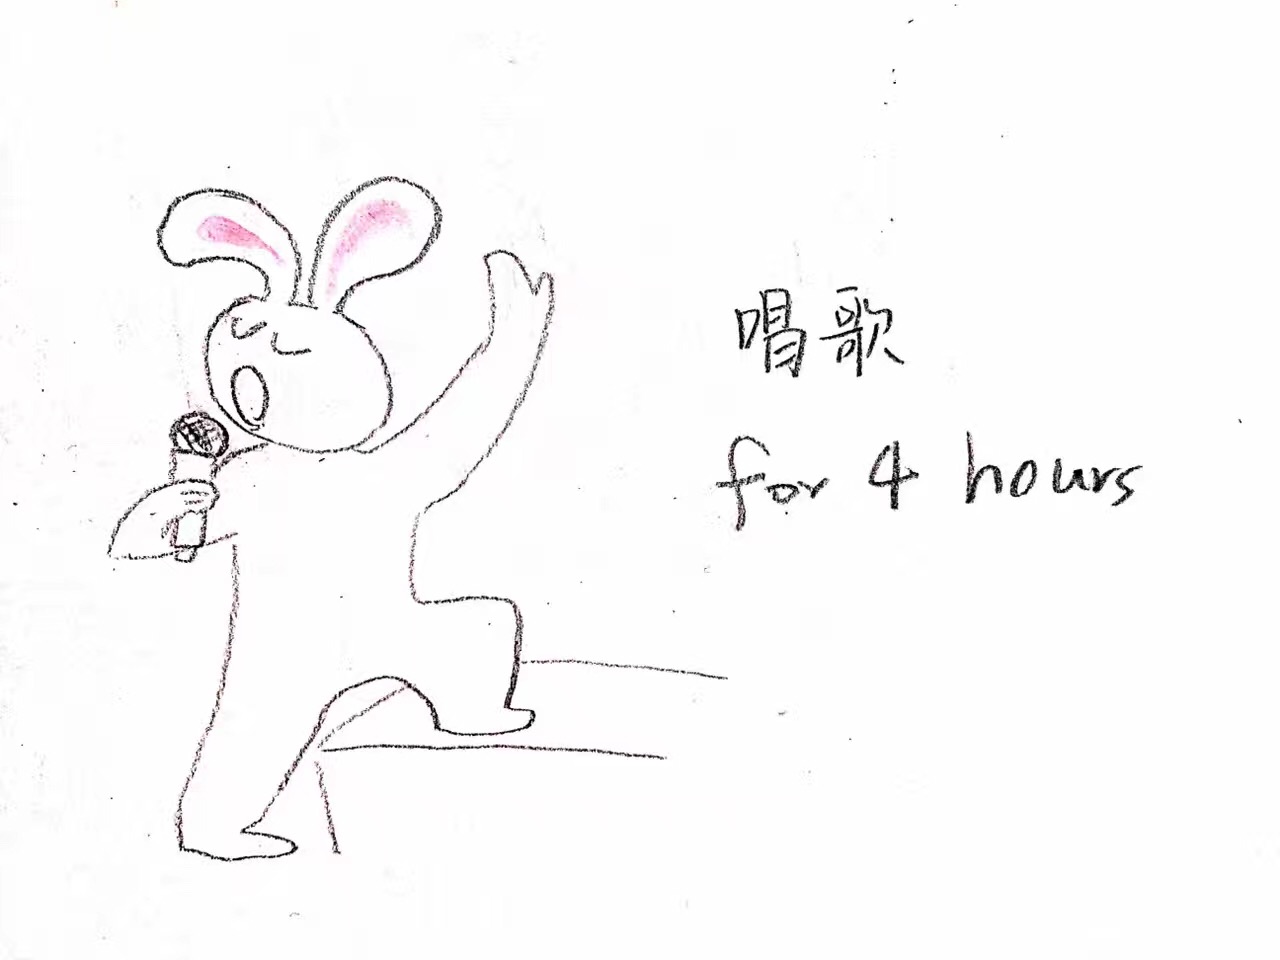 唱歌
for 4 hours